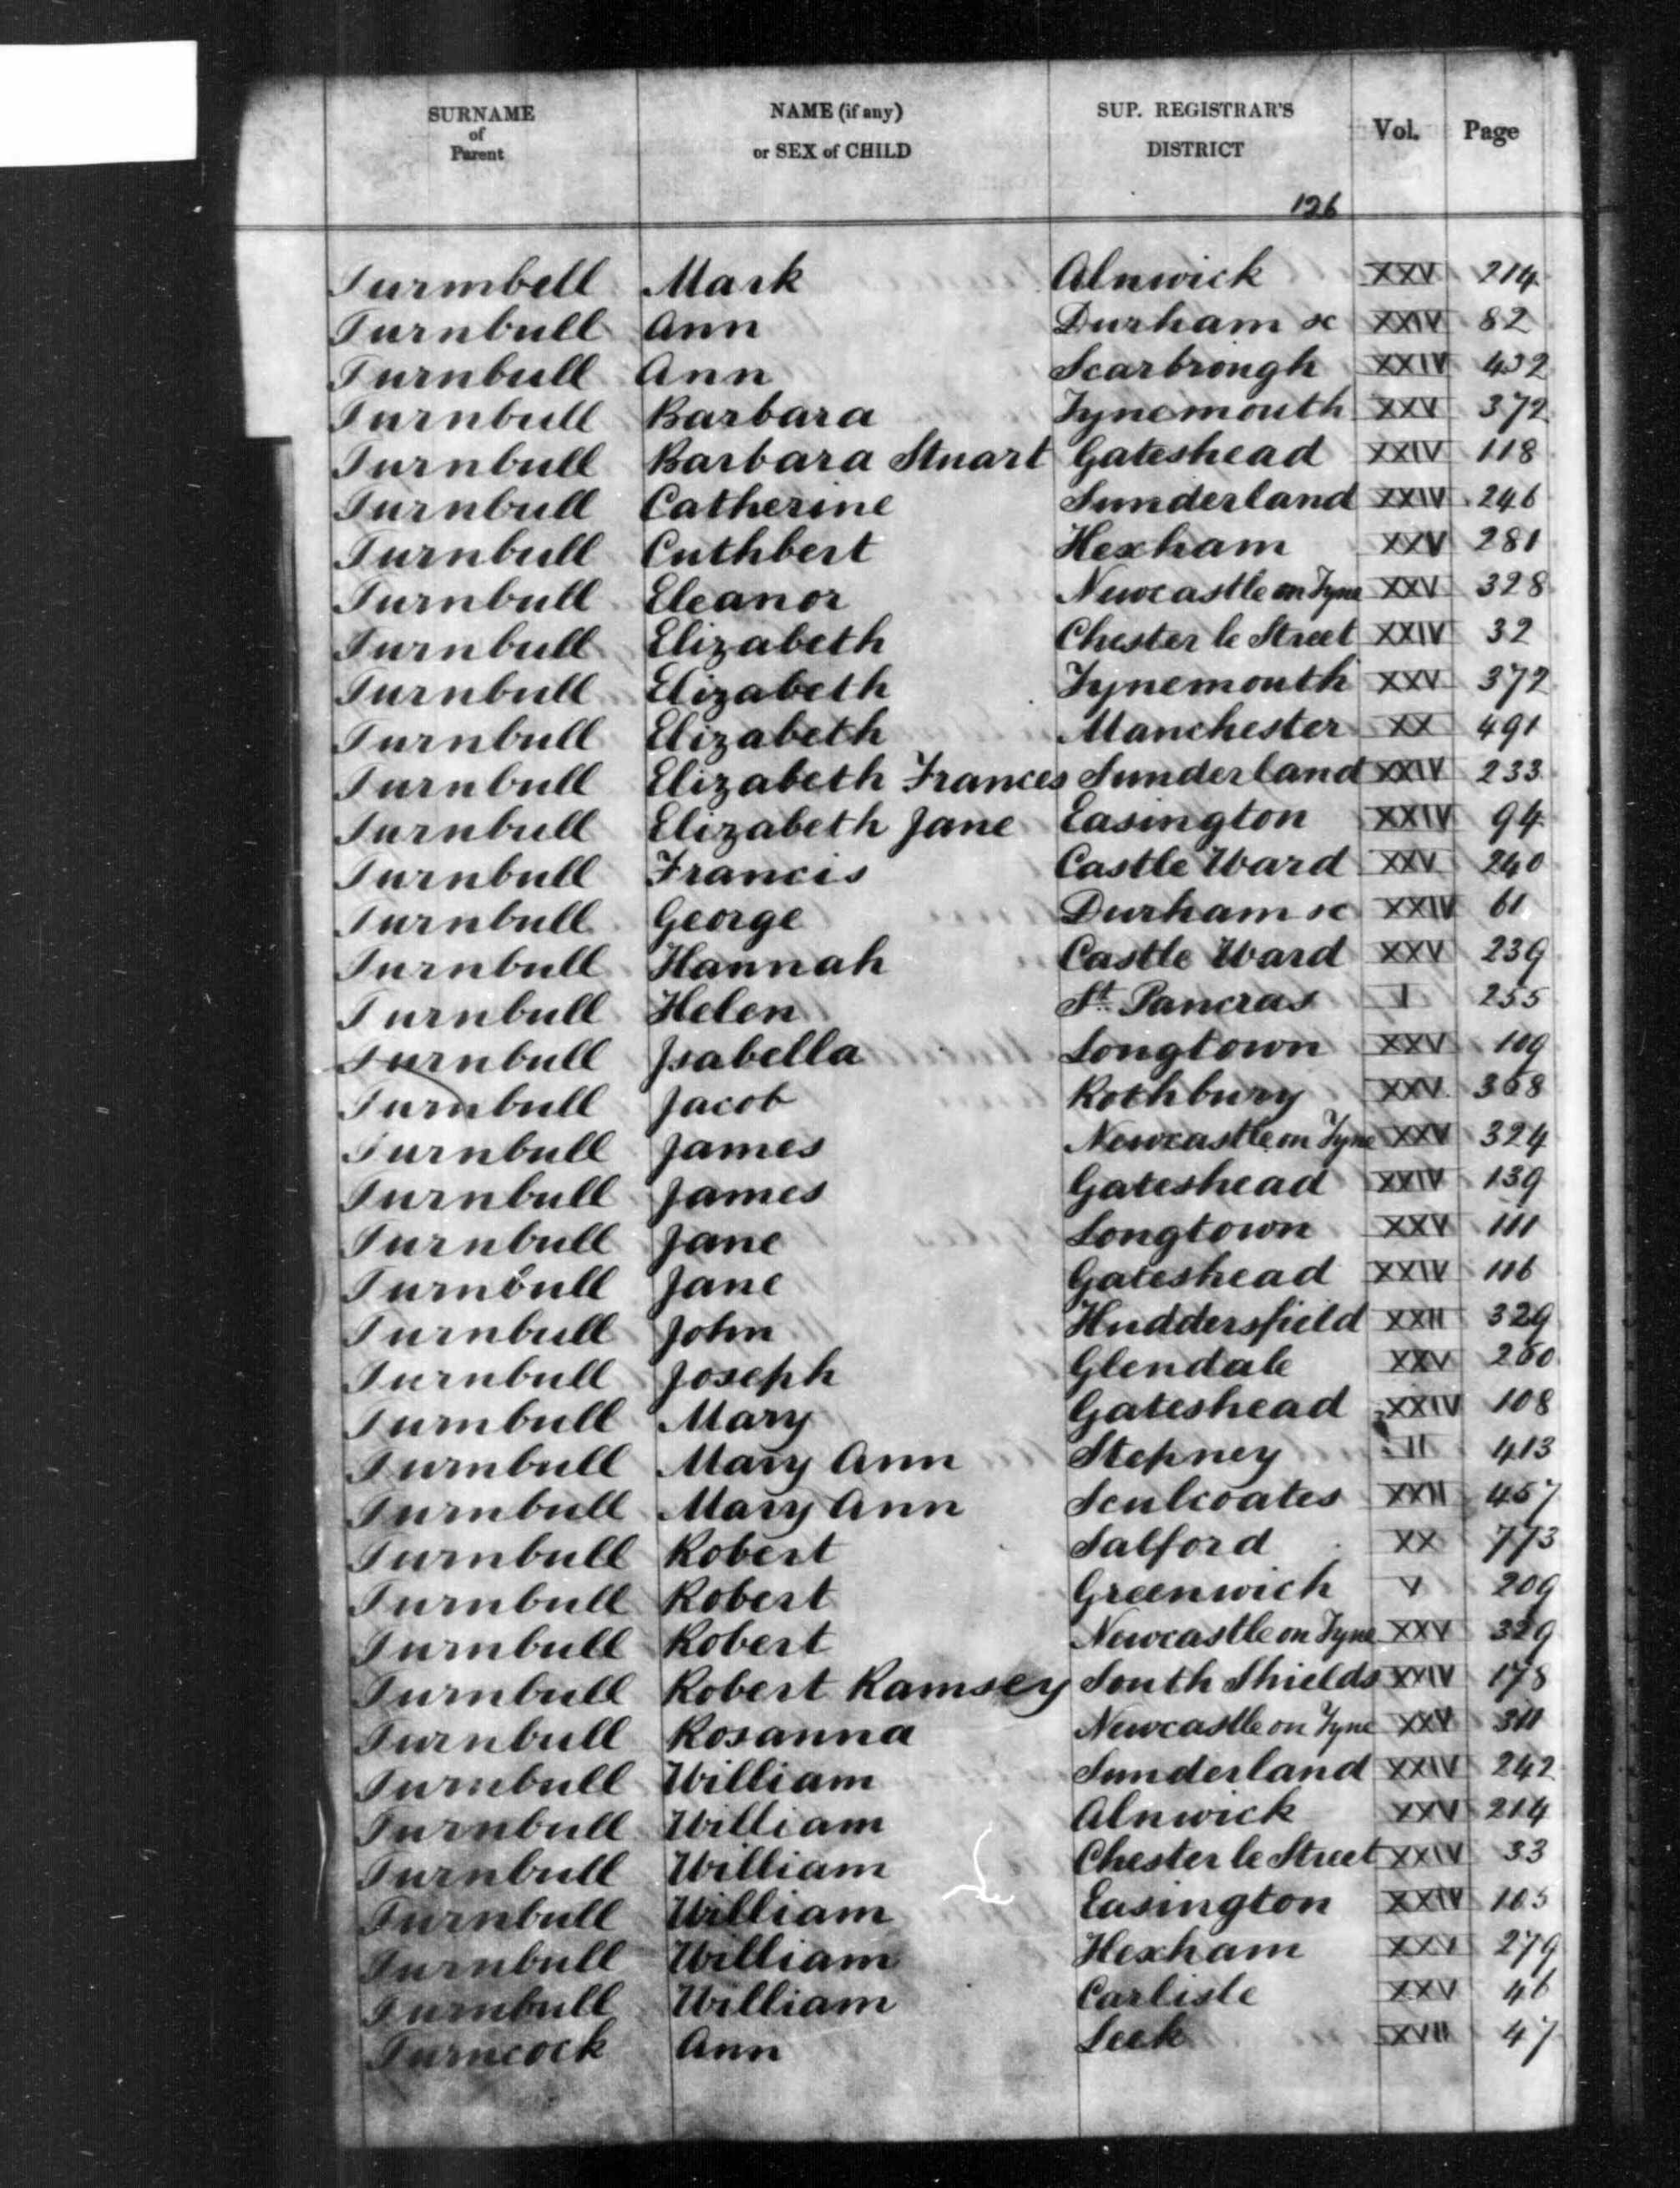 SURNAME of Parent NAME (if any) or SEX of CHILD SUP. REGISTRAR'S DISTRICT Vol. Page
126
Turmbell Mark Alnwick XXV 214
Turnbull Ann Durham &c XXIV 82
Turnbull Ann Scarbrough XXIV 432
Turnbull Barbara Tynemouth XXV 372
Turnbull Barbara Stuart Gateshead XXIV 118
Turnbull Catherine Sunderland XXIV 246
Turnbull Cuthbert Hexham XXV 281
Turnbull Eleanor Newcastle on Tyne XXV 328
Turnbull Elizabeth Chester le Street XXIV 32
Turnbull Elizabeth Tynemouth XXV 372
Turnbull Elizabeth Manchester XX 491
Turnbull Elizabeth Frances Sunderland XXIV 233
Turnbull Elizabeth Jane Easington XXIV 94
Turnbull Francis Castle Ward XXV 240
Turnbull George Durham &c XXIV 61
Turnbull Hannah Castle Ward XXV 239
Turnbull Helen St. Pancras I 255
Turnbull Isabella Longtown XXV 109
Turnbull Jacob Rothbury XXV
Turnbull James Newcastle on Tyne XXV 324
Turnbull James Gateshead XXIV 139
Turnbull Jane Longtown XXV 111
Turnbull Jane Gateshead XXIV 116
Turnbull John Huddersfield XXII 329
Turnbull Joseph Glendale XXV 260
Turnbull Mary Gateshead XXIV 108
Turnbull Mary Ann Stepney II 413
Turnbull Mary Ann Sculcoates XXII 457
Turnbull Robert Salford XX 773
Turnbull Robert Greenwich V 209
Turnbull Robert Newcastle on Tyne XXV 329
Turnbull Robert Ramsey South Shields XXIV 178
Turnbull Rosanna Newcastle on Tyne XXV 311
Turnbull William Sunderland XXIV 242
Turnbull William Alnwick XXV 214
Turnbull William Chester le Street XXIV 33
Turnbull William Easington XXIV 105
Turnbull William Hexham XXV 279
Turnbull William Carlisle XXV 46
Turncock Ann Leek XVII 47